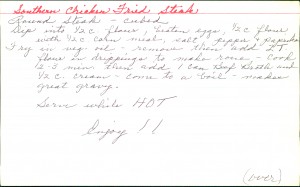 Southern Chicken Fried Steak
Round Steak - cubed
Dip into 1/2 c. flour, beaten eggs, 1/2 c flour
with 1/2 c. corn meal, salt, pepper & paprika
Fry in veg oil - remove then add 2 T
flour in drippings to make roux - Cook
2-3 min. then add 1 can Beef Broth and
1/2 c. cream - come to a boil - makes
great gravy.
Serve while HOT
Enjoy !!
(over)